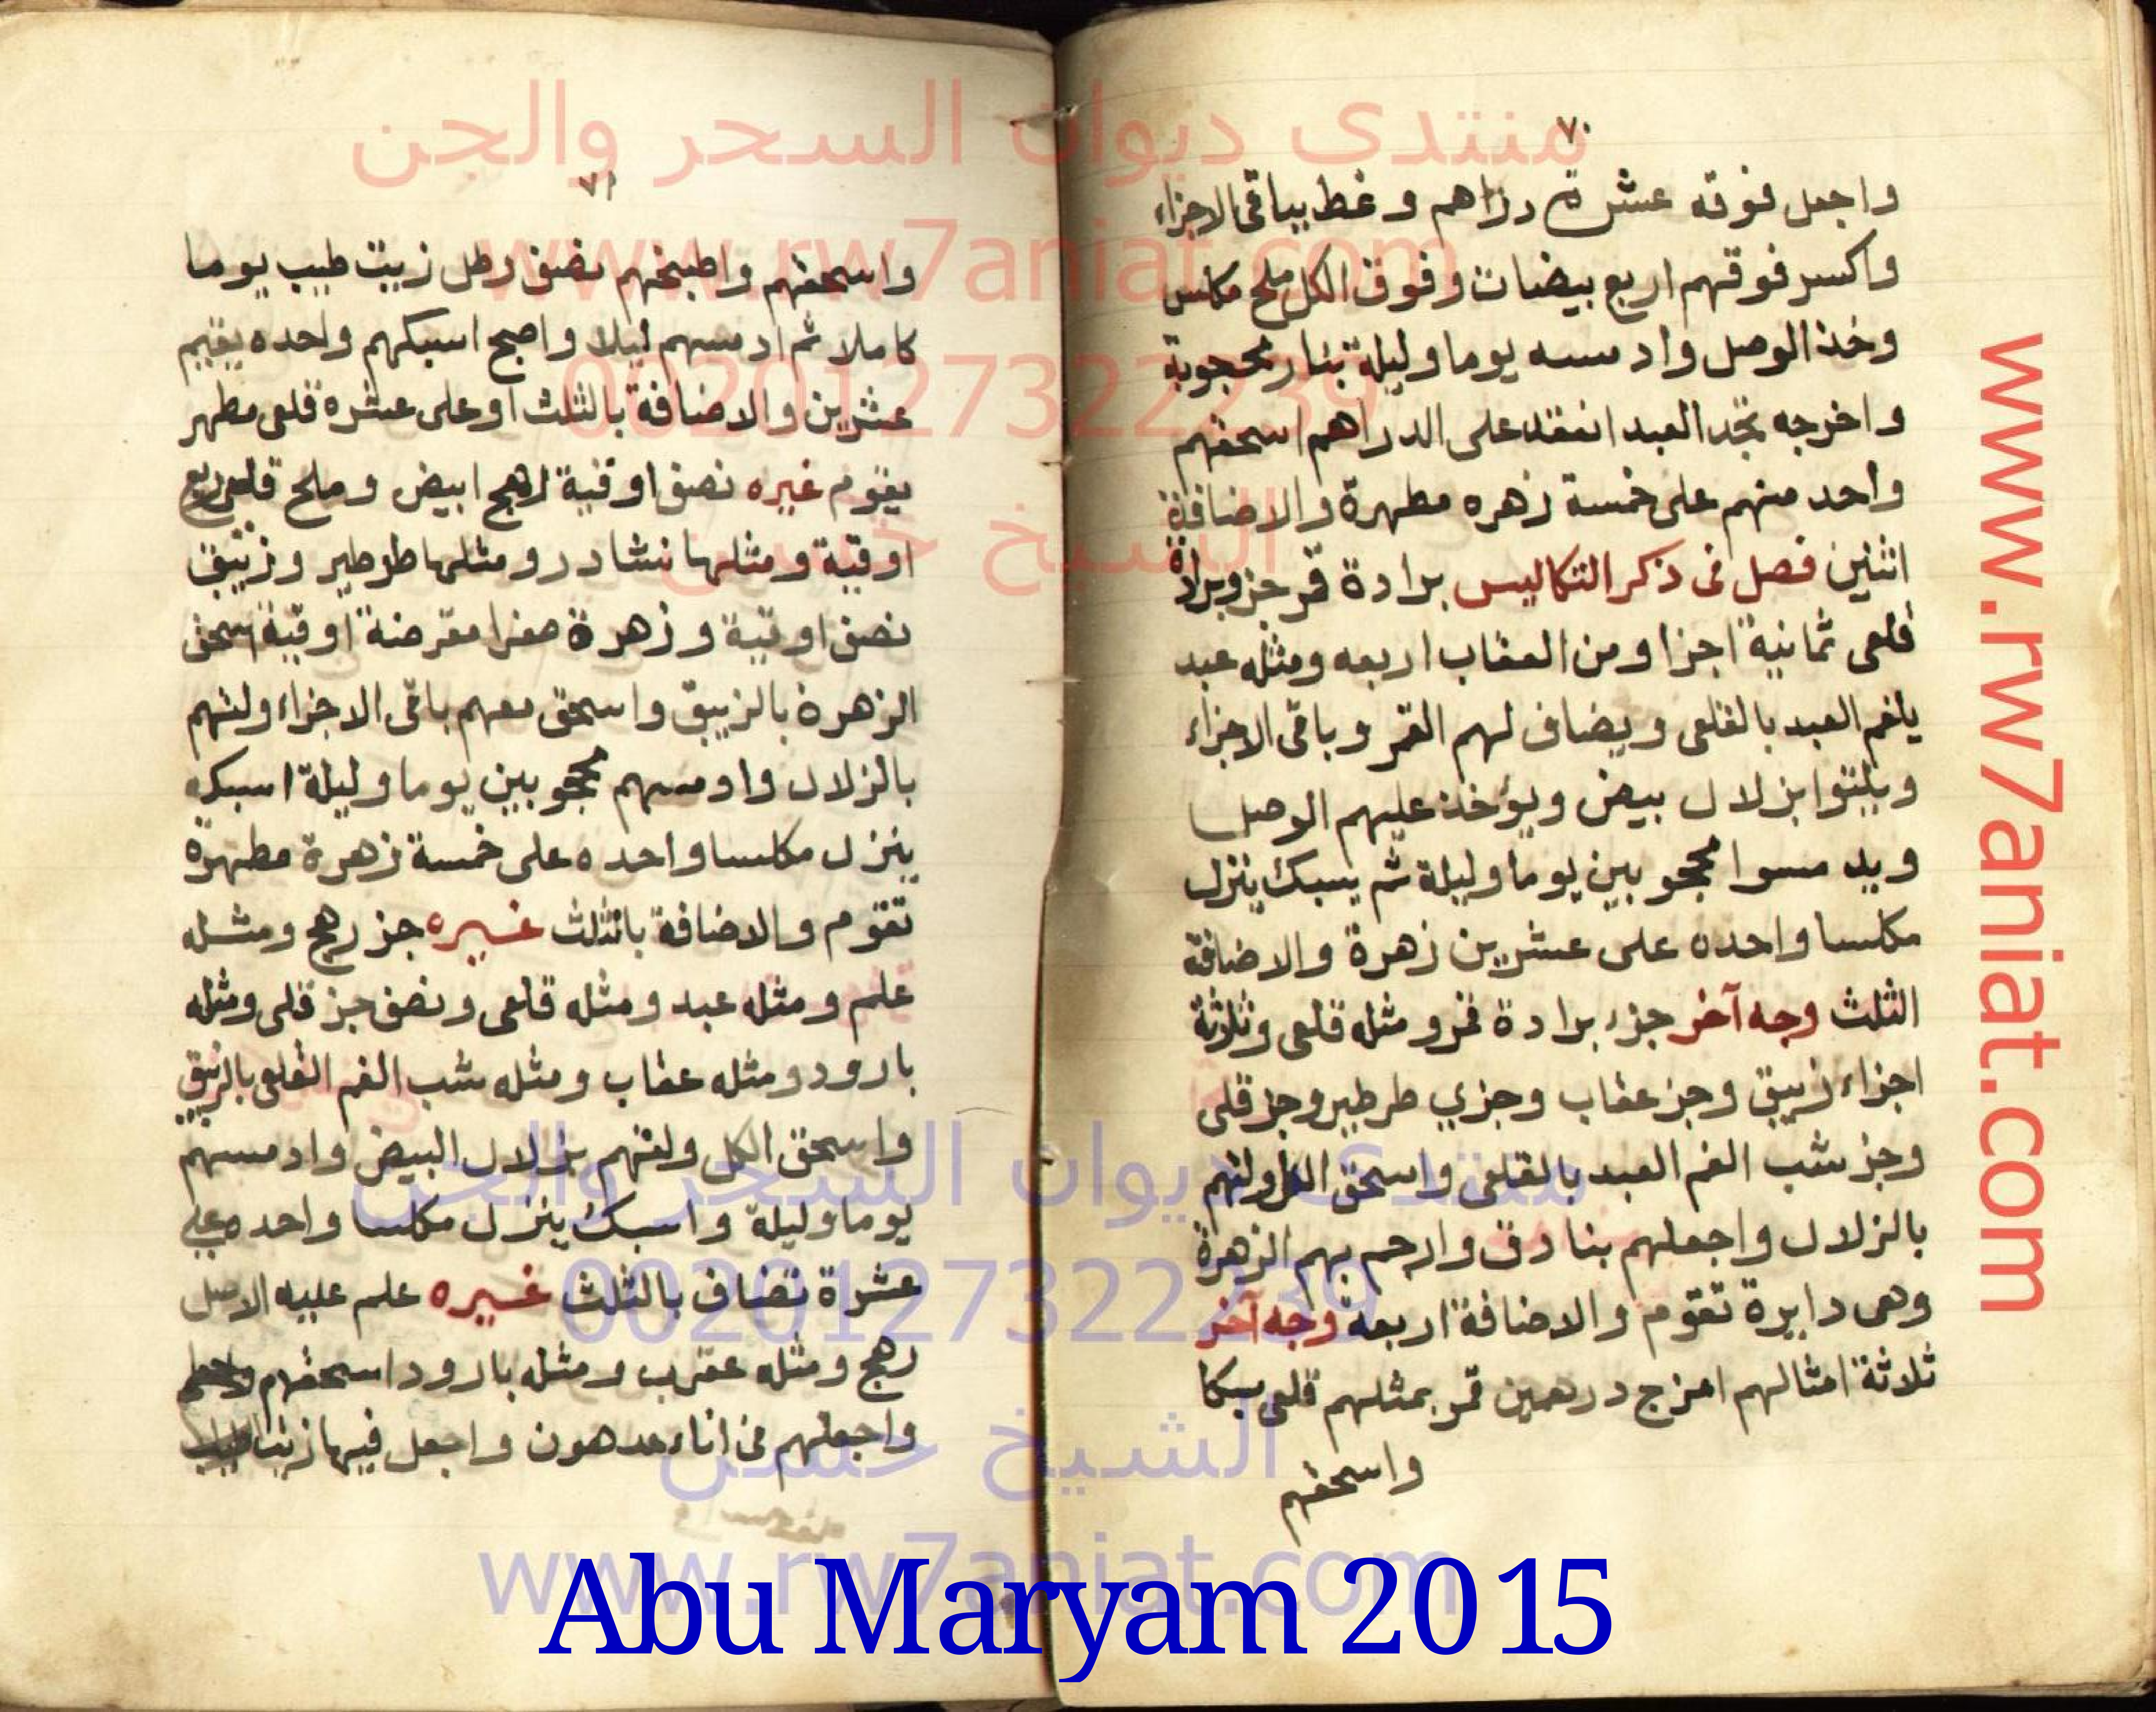 ٧٠
واجعل فوقه عشرة دراهم وغط بباقى الاجزاء
واكسر فوقهم اربع بيضات وفوق الكل ملح مكلس
وخذ الوصل وادمسه يوما وليلة بنار محجوبة
واخرجه تجد العبد انعقد على الدراهم اسحقهم
واحد منهم على خمسة زهره مطهرة والاضافة
اثنين فصل فى ذكر التكاليس برادة قمر جزو برادة
قلعى ثمانية اجزا ومن العقاب اربعه ومثله عبد
يلغم العبد بالقلعى ويضاف لهم القمر وباقى الاجزاء
ويلتوا بزلال بيض ويؤخذ عليهم الوصل
ويدمسوا محجوبين يوما وليلة ثم يسبك ينزل
مكلسا واحده على عشرين زهرة والاضافة
الثلث وجه آخر جزء برادة قمر ومثله قلعى وثلاثة
اجزاء زيبق وجز عقاب وجزي طرطير وجز قلى
وجز شب الغم العبد بالقلعى واسحق الكل ولتهم
بالزلال واجعلهم بنادق وارحم بهم الزهرة
وهى دايرة تقوم والاضافة اربعة وجه آخر
ثلاثة امثالهم امزج درهمين قمر بمثلهم قلعى سبكا
واسحقهم
٧١
واسحقهم واطبخهم نصف رطل زيت طيب يوما
كاملا ثم ادمسهم ليلا واصبح اسبكهم واحده يقيم
عشرين والاضافة بالثلث او على عشره قلعى مطهر
يقوم غيره نصف اوقية رهج ابيض وملح قلعى ربع
اوقية ومثلها نشادر ومثلها طرطير وزيبق
نصف اوقية وزهرة صفرا مقرضة اوقية اسحق
الزهرة بالزيبق واسحق معهم باقى الاجزاء ولتهم
بالزلال وادمسهم محجوبين يوما وليلة اسبكه
ينزل مكلسا واحده على خمسة زهرة مطهرة
تقوم والاضافة بالثلث غيره جز رهج ومثله
علم ومثله عبد ومثله قلعى ونصف جز قلى ومثله
بارود ومثله عقاب ومثله شب الغم القلعى بالزيبق
واسحق الكل ولتهم بزلال البيض وادمسهم
يوما وليلة واسبك ينزل مكلسا واحده على
عشرة تضاف بالثلث غيره علم عليه الاصل
رهج ومثله عقرب ومثله بارود اسحقهم
واجعلهم فى اناء مدهون واجعل فيها زيتا طيب
منتدى ديوان السحر والجن
www.rw7aniat.com
00201273222239
الشيخ حسن
منتدى ديوان السحر والجن
00201273222239
الشيخ حسن
www.rw7aniat.com
www.rw7aniat.com
Abu Maryam 2015